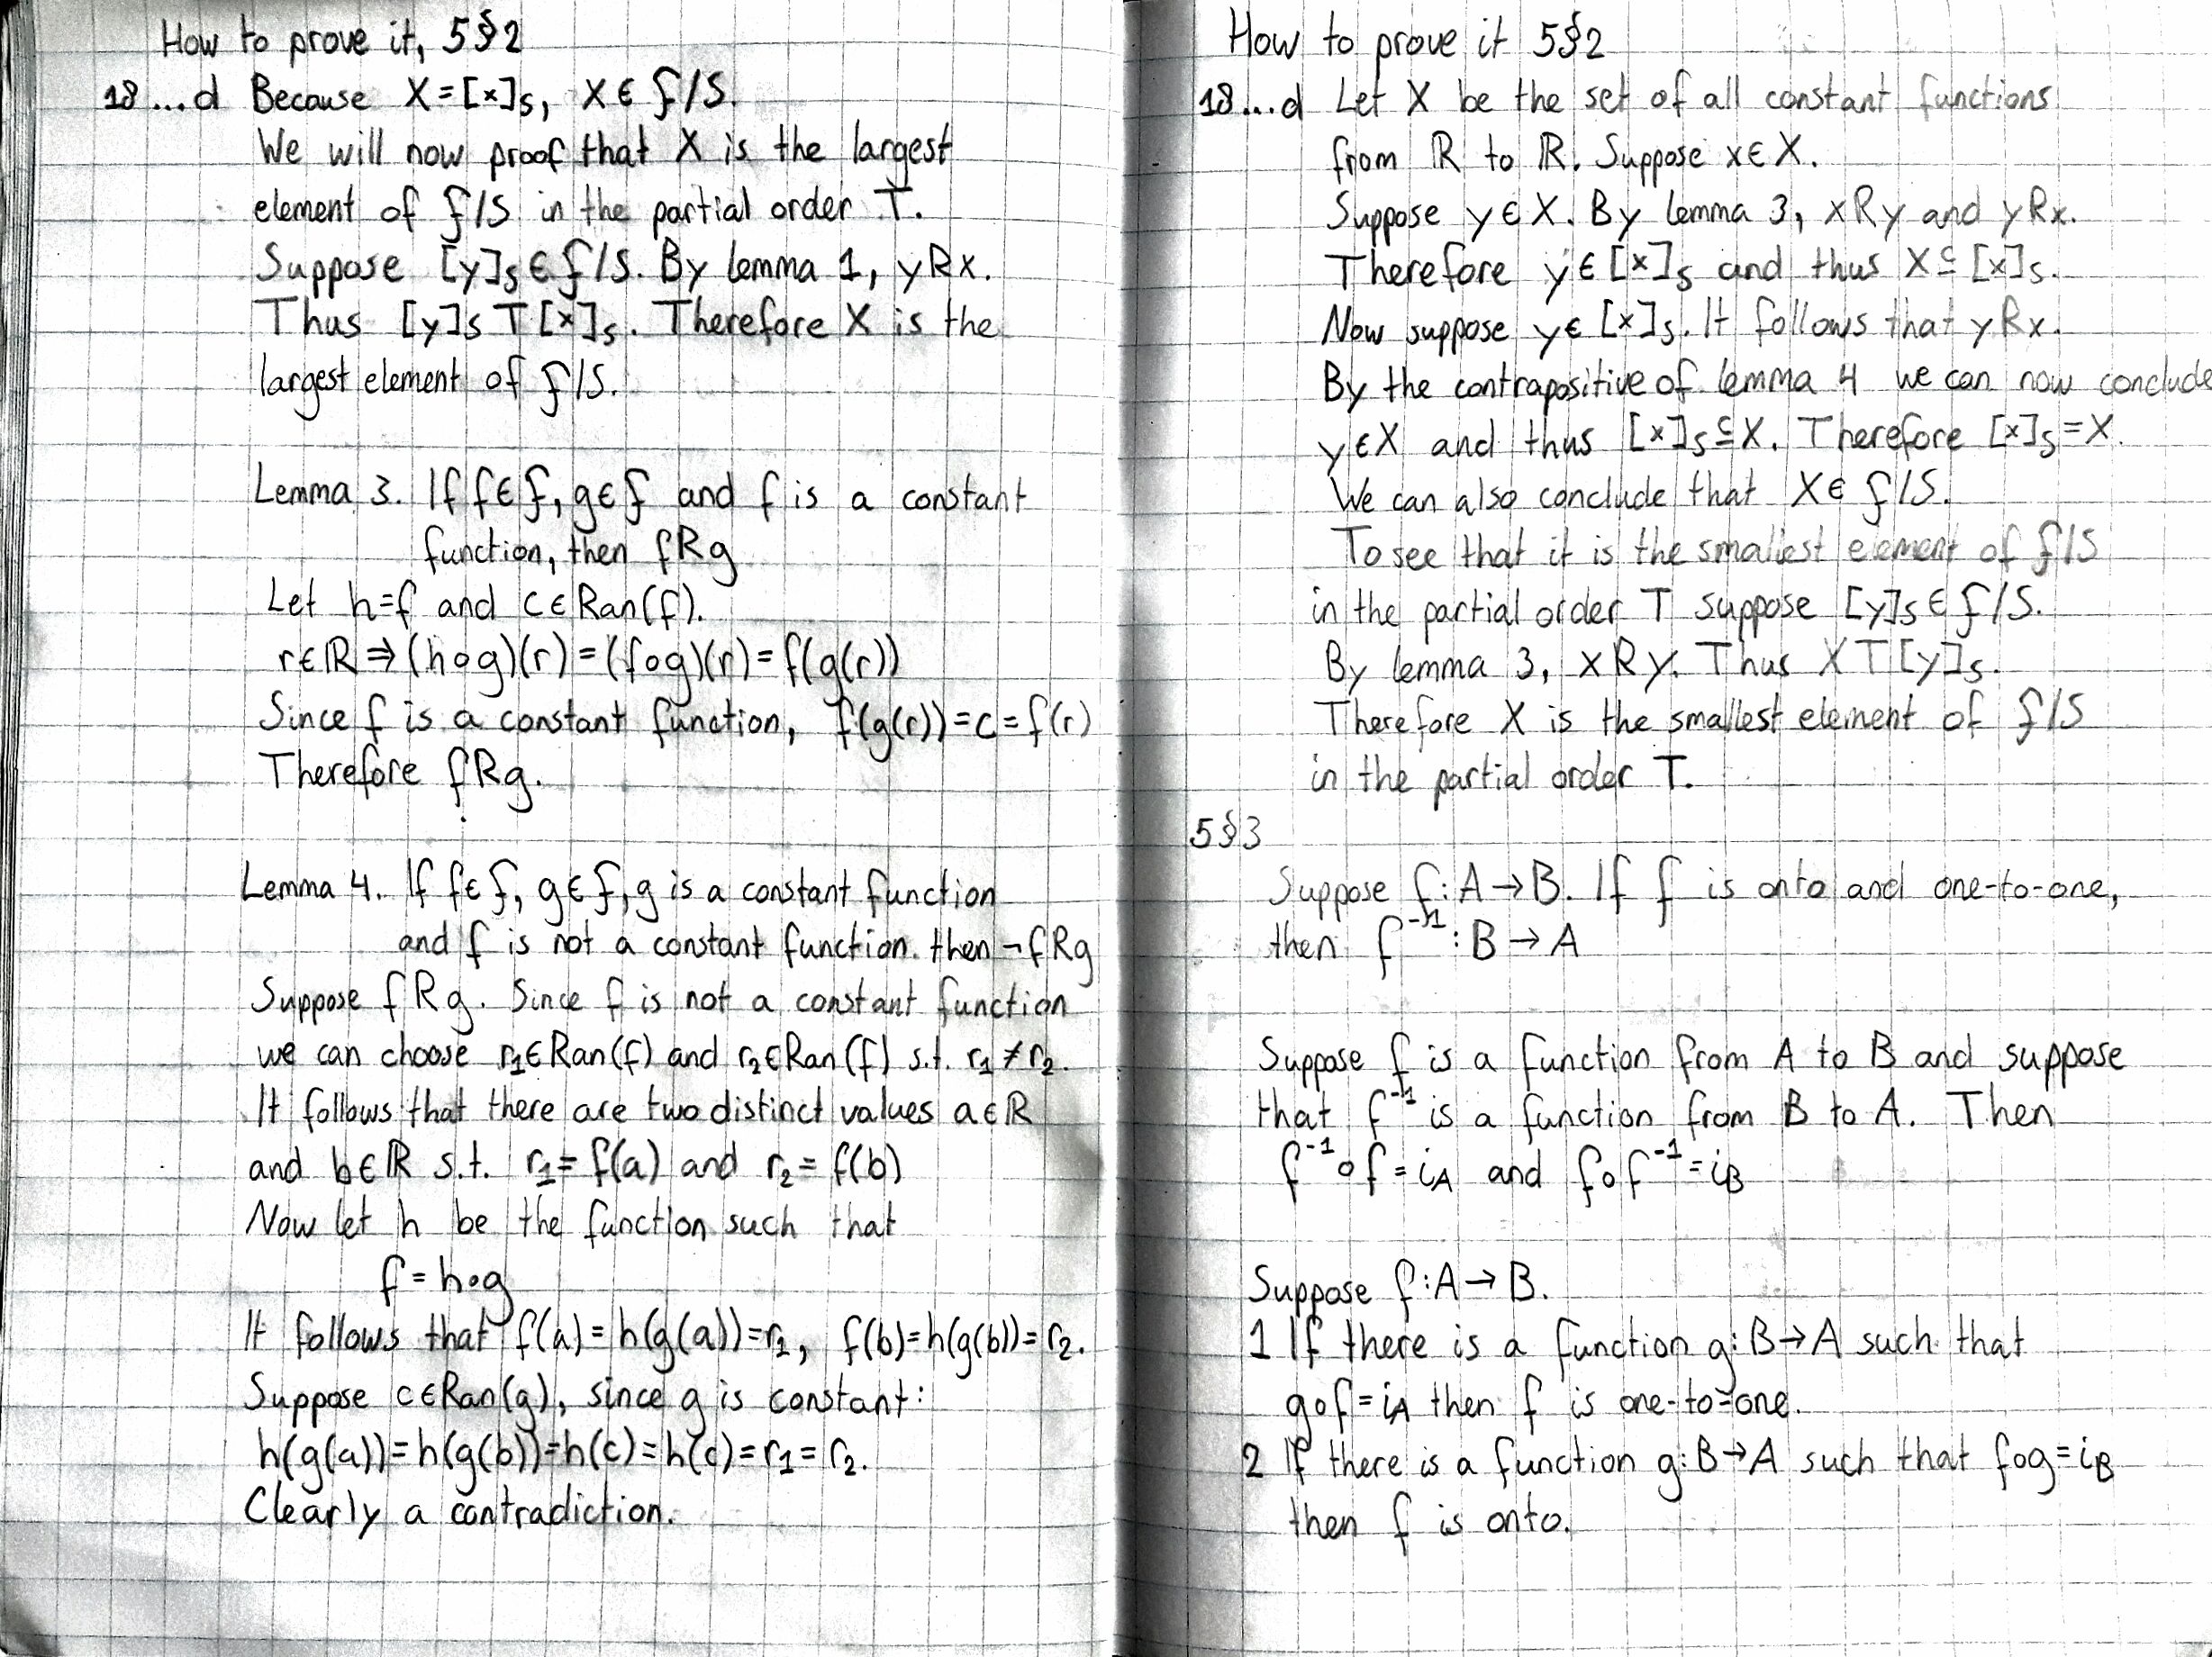 How to prove it, 5§2
18...d Because X=[x]s, X∈ℱ/S.
We will now proof that X is the largest
element of ℱ/S in the partial order T.
Suppose [y]s∈ℱ/S. By lemma 1, yRx.
Thus [y]s T [x]s. Therefore X is the
largest element of ℱ/S.
Lemma 3. If f∈ℱ, g∈ℱ and f is a constant
function, then fRg
Let h=f and c∈Ran(f).
r∈ℝ⇒(h∘g)(r)=(f∘g)(r)=f(g(r))
Since f is a constant function, f(g(r))=c=f(r)
Therefore fRg.
Lemma 4. If f∈ℱ, g∈ℱ, g is a constant function
and f is not a constant function. then ¬fRg
Suppose fRg. Since f is not a constant function
we can choose r₁∈Ran(f) and r₂∈Ran(f) s.t. r₁≠r₂.
It follows that there are two distinct values a∈ℝ
and b∈ℝ s.t. r₁=f(a) and r₂=f(b)
Now let h be the function such that
f=h∘g
It follows that f(a)=h(g(a))=r₁, f(b)=h(g(b))=r₂.
Suppose c∈Ran(g), since g is constant:
h(g(a))=h(g(b))=h(c)=h(c)=r₁=r₂.
Clearly a contradiction.
How to prove it 5§2
18...d Let X be the set of all constant functions
from ℝ to ℝ. Suppose x∈X.
Suppose y∈X. By lemma 3, xRy and yRx.
Therefore y∈[x]s and thus X⊆[x]s.
Now suppose y∈[x]s. It follows that yRx.
By the contrapositive of lemma 4 we can now conclude
y∈X and thus [x]s⊆X. Therefore [x]s=X.
We can also conclude that X∈ℱ/S.
To see that it is the smallest element of ℱ/S
in the partial order T suppose [y]s∈ℱ/S.
By lemma 3, xRy. Thus XT[y]s.
Therefore X is the smallest element of ℱ/S
in the partial order T.
5§3
Suppose f:A→B. If f is onto and one-to-one,
then f⁻¹:B→A
Suppose f is a function from A to B and suppose
that f⁻¹ is a function from B to A. Then
f⁻¹∘f=i_A and f∘f⁻¹=i_B
Suppose f:A→B.
1 If there is a function g:B→A such that
g∘f=i_A then f is one-to-one.
2 If there is a function g:B→A such that f∘g=i_B
then f is onto.